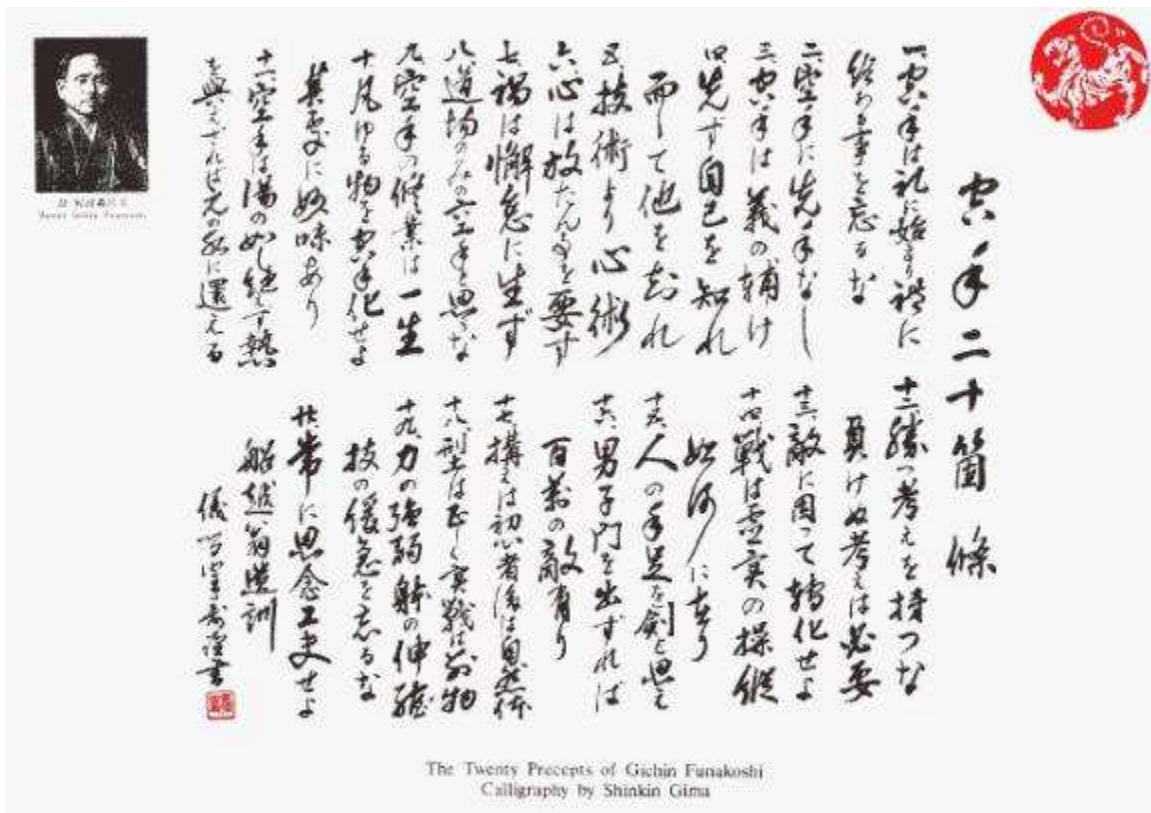 空手二十箇條
一、空手は礼に始り礼に
終る事を忘るな
二、空手に先手なし
三、空手は義の輔け
四、先ず自己を知れ
而して他を知れ
五、技術より心術
六、心は放たん事を要す
七、禍は懈怠に生ず
八、道場のみの空手と思ふな
九、空手の修業は一生
十、凡ゆる物を空手化せよ
其処に妙味あり
十一、空手は湯の如し絶えず熱
を與えざれば元の水に還える
十二、勝つ考えを持つな
負けぬ考えは必要
十三、敵に因って轉化せよ
十四、戦は虚実の操縦
如何に在り
十五、人の手足を剣と思え
十六、男子門を出ずれば
百萬の敵有り
十七、構えは初心者後は自然体
十八、型は正しく実戦は別物
十九、力の強弱躰の伸縮
技の緩急を忘るな
廿、常に思念工夫せよ
船越翁遺訓
書
Master Gichin Funakoshi
The Twenty Precepts of Gichin Funakoshi
Calligraphy by Shinkin Gima